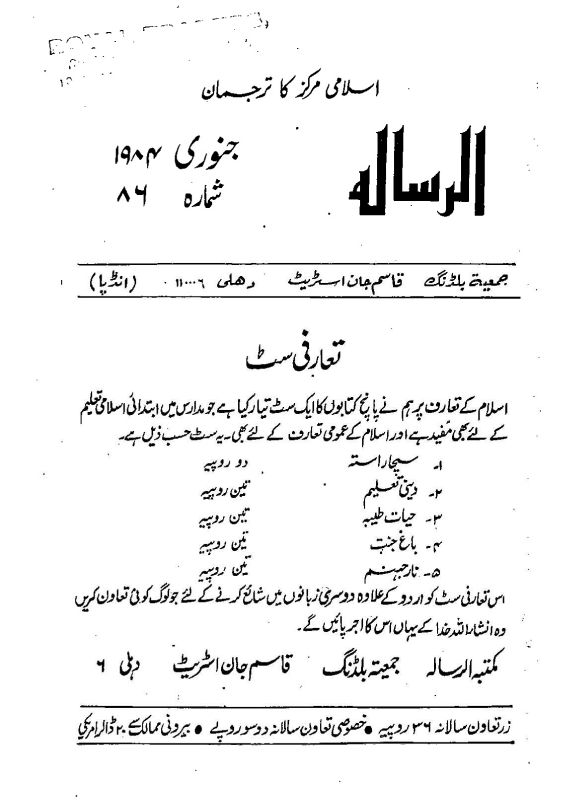 اسلامی مرکز کا ترجمان
الرسالہ
جنوری ۱۹۸۴
شمارہ ۸۶
جمعیۃ بلڈنگ قاسم جان اسٹریٹ دھلی ۱۱۰۰۰۶ (انڈیا)
تعارفی سٹ
اسلام کے تعارف پر ہم نے پانچ کتابوں کا ایک سٹ تیار کیا ہے جو مدارس میں ابتدائی اسلامی تعلیم
کے لئے بھی مفید ہے اور اسلام کے عمومی تعارف کے لئے بھی۔ یہ سٹ حسب ذیل ہے۔
۱۔ سچا راستہ دو روپیہ
۲۔ دینی تعلیم تین روپیہ
۳۔ حیات طیبہ تین روپیہ
۴۔ باغ جنت تین روپیہ
۵۔ نار جہنم تین روپیہ
اس تعارفی سٹ کو اردو کے علاوہ دوسری زبانوں میں شائع کرنے کے لئے جو لوگ کوئی تعاون کریں
وہ انشاراللہ خدا کے یہاں اس کا اجر پائیں گے۔
مکتبہ الرسالہ جمعیتہ بلڈنگ قاسم جان اسٹریٹ دہلی ۶
زر تعاون سالانہ ۳۶ روپیہ ● خصوصی تعاون سالانہ دو سو روپے ● بیرونی ممالک سے ۲۰ ڈالر امریکی